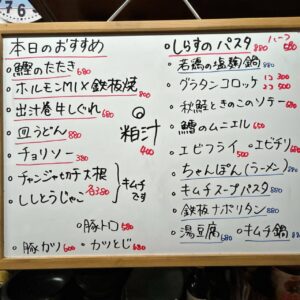 76
本日のおすすめ
鰹のたたき 680
ホルモンMIX鉄板焼 800
出汁巻玉しぐれ 680
皿うどん 880
チョリソー 380
チャンジャ
大根
ししとうじゃこ
キムチです
豚トロ 680
豚ガツ 600
カツとじ 680
粕汁 400
しらすのパスタ 880
ハーフ 680
若鶏の塩麹鍋 880
グラタンコロッケ
500
秋鮭ときのこのソテー 680
鱈のムニエル 650
エビフライ 500
エビチリ 680
ちゃんぽん(ラーメン) 880
キムチスープパスタ 880
鉄板ナポリタン 880
湯豆腐 680
キムチ鍋 880